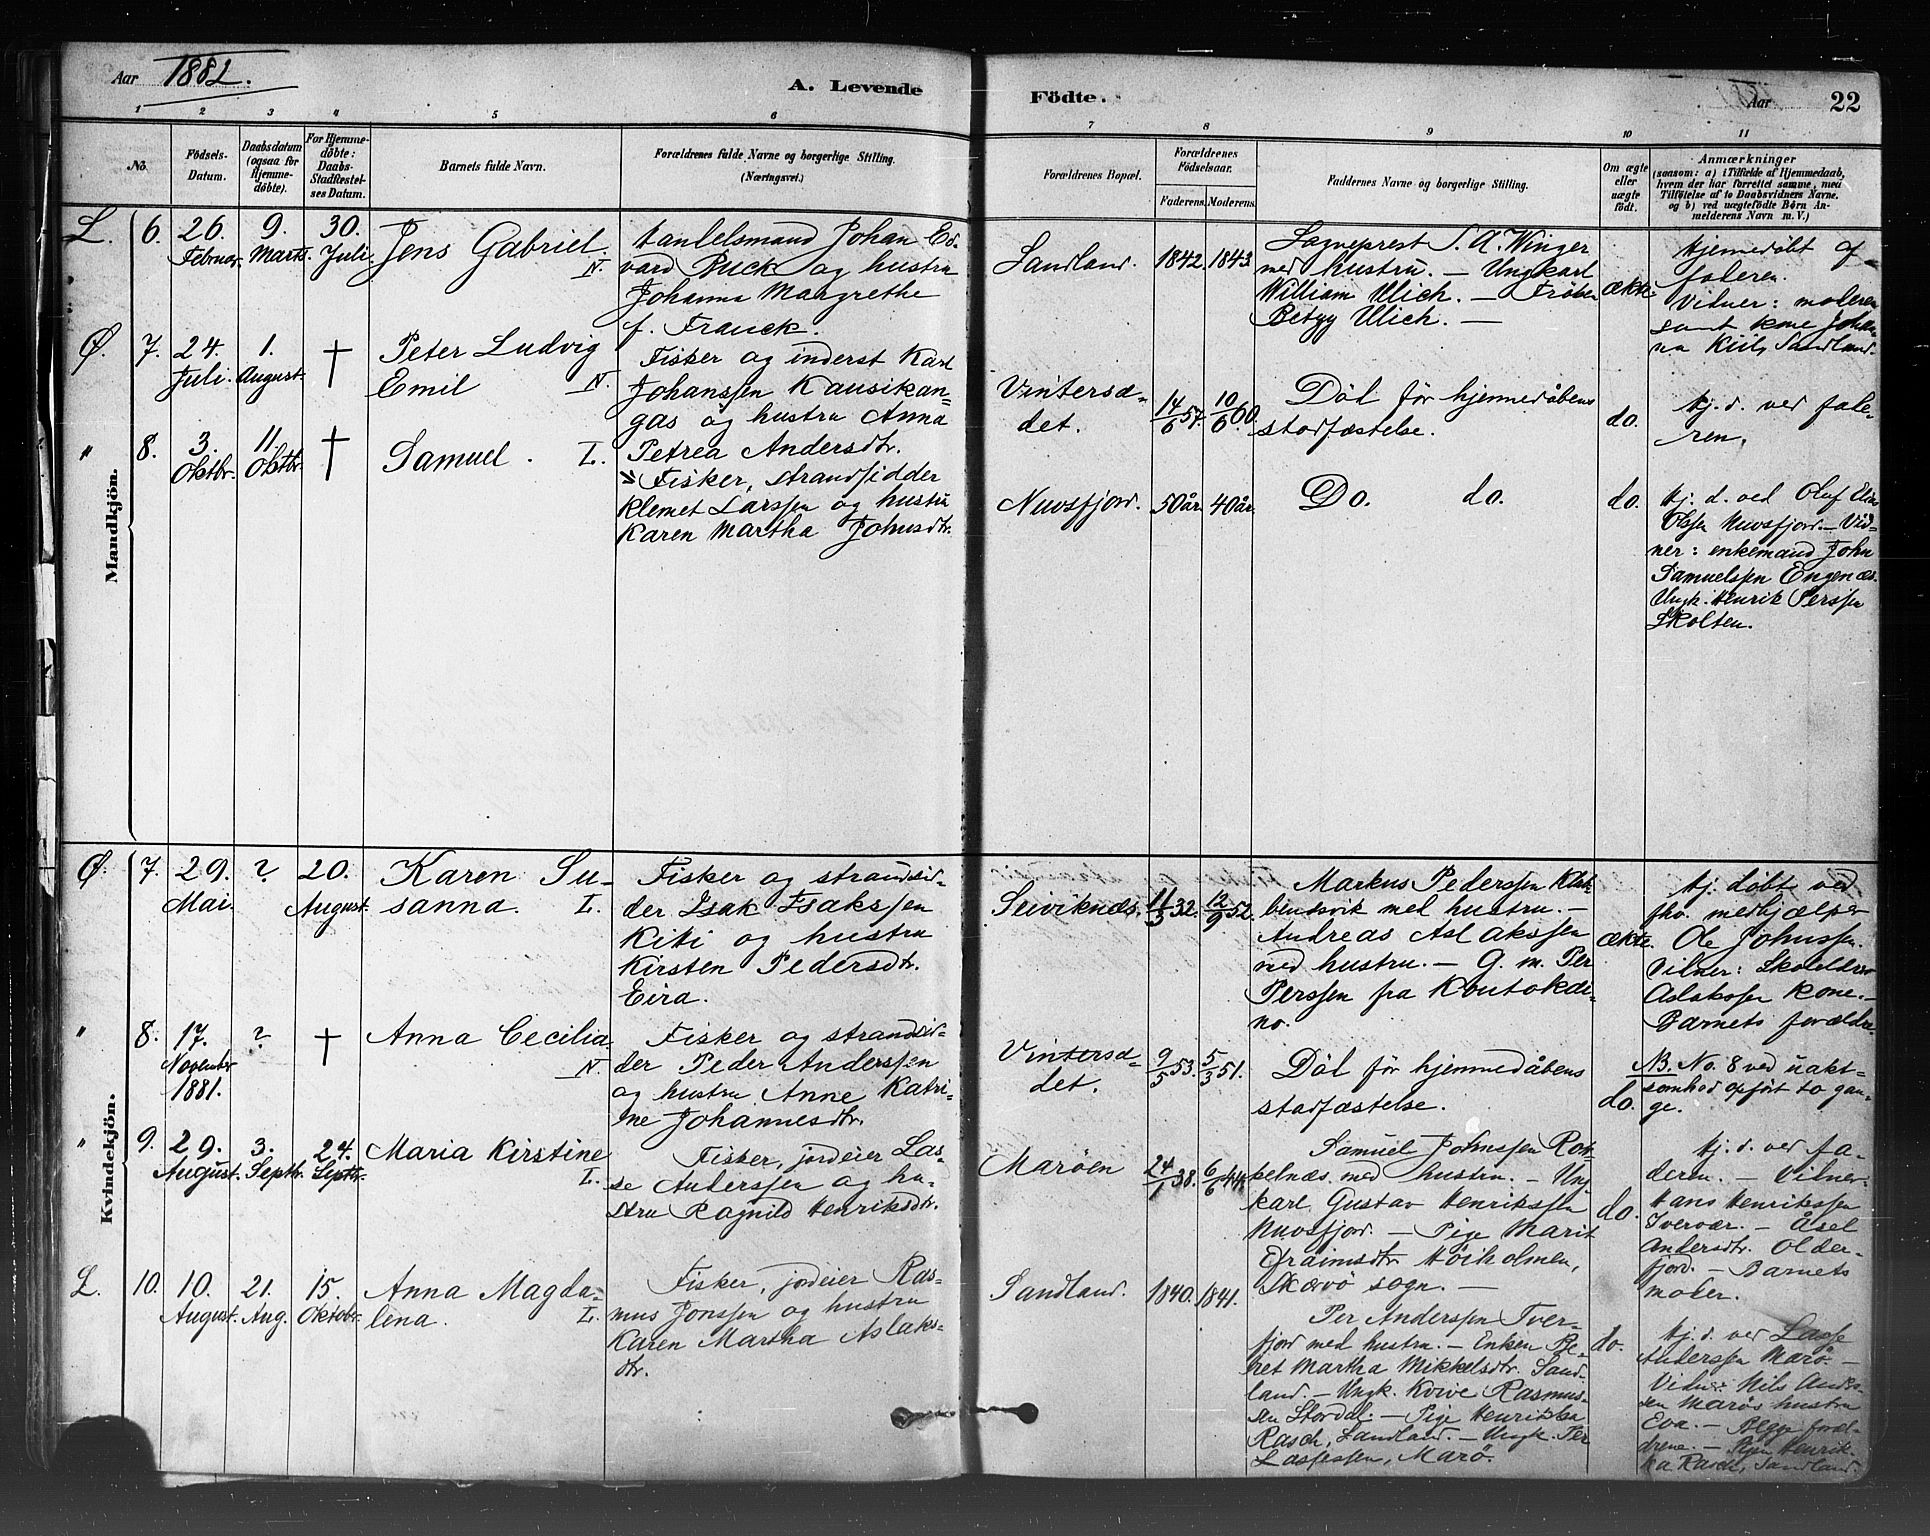 Aar 1882.
A. Levende Födte.
Aar 22
1 2 3 4 5 6 7 8 9 10 11
No.
Födsels-Datum.
Daabsdatum (ogsaa for Hjemmedöbte).
For Hjemmedöbte: Daabs-Stadfæstelses Datum.
Barnets fulde Navn.
Forældrenes fulde Navne og borgerlige Stilling. (Næringsvei.)
Forældrenes Bopæl.
Forældrenes Födselsaar.
Faderens. Moderens.
Faddernes Navne og borgerlige Stilling.
Om ægte eller uægte födt.
Anmærkninger
(saasom: a) i Tilfælde af Hjemmedaab, hvem der har forrettet samme, med Tilföielse af to Daabsvidners Navne, og b) ved uægtefödte Børn Anmelderens Navn m. V.)
Mandkjön.
L. 6. 26. Februar. 9. Marts. 30. Juli
Jens Gabriel. N.
Handelsmand Johan Ed-
vard Buck og hustru
Johanna Margrethe
f. Franck.
Sandland. 1842. 1843.
Sogneprest S. A. Winger
med hustru. – Ungkarl
William Ulich. – Frøken
Betzy Ulich. –
ækte.
Hjemmedøbt af
faderen.
Vidner: moderen
samt kone Johan-
na Kiil, Sandland.
Ø. 7. 24. Juli. 1. August. †
Peter Ludvig
Emil N.
Fisker og inderst Karl
Johanssen Kausikan-
gas og hustru Anna
Petrea Andersdtr.
Vintersd-
det. 14/6 57. 10/6 60.
Död før hjemmedåbens
stadfæstelse.
do.
Hj. d. ved fade-
ren.
" 8. 3. Oktbr. 11. Oktbr. †
Samuel. L.
Fisker, strandsidder
Klemet Larssen og hustru
Karen Martha Johnsdtr.
Nuvsfjord. 50 år. 40 år.
Do. do.
do.
Hj. d. ved Oluf Elias
Olssen Nuvsfjord. – Vid-
ner: enkemand John
Samuelssen Engenæs.
Ungk. Henrik Perssen
Skolten.
Kvindekjön.
Ø. 7. 29. Mai. ? 20. August.
Karen Su-
sanna. L.
Fisker og strandsid-
der Isak Isakssen
Kiti og hustru
Kirsten Pedersdtr.
Eira.
Seiviknæs. 11/3 32. 12/9 52.
Markus Pederssen
med hustru. –
Andreas Aslakssen
med hustru. – G. m. Per
Perssen fra Koutokæi-
no.
ækte.
Hj. døbt ved
fho. medhjælper
Ole Johnssen.
Vidner:
Aslakssen kone. –
Barnets forældre.
" 8. 17. November 1881. ? †
Anna Cecilia.
N.
Fisker og strandsid-
der Peder Anderssen
og hustru Anne Katri-
ne Johannesdtr.
Vintersd-
det. 9/5 53. 5/3 51.
Död før hjemmedåbens
stadfæstelse.
do.
NB. No. 8 ved uakt-
somhed opført to gan-
ge.
" 9. 29. August. 3. Septbr. 24. Septbr.
Maria Kirstine
L.
Fisker, jordeier Las-
se Anderssen og hu-
stru Ragnild Henriksdtr.
Marøen 24/1 38. 6/6 44.
Samuel Johnssen Rot-
kelnæs med hustru. – Ung
karl Gustav Henrikssen
Nuvsfjord. – Pige Marit
Efraimsdtr. Høiholmen,
Skærvö sogn. –
do.
Hj. d. ved fa-
deren. – Vidner
Hans Henrikssen
Tverrvær. – Åsel
Andersdtr. Older-
fjord. – Barnets
moder.
L. 10. 10. August. 21. Aug. 15. Oktobr.
Anna Magda-
lena. L.
Fisker, jordeier Ras-
mus Jonssen og hustru
Karen Martha Aslaks-
dtr.
Sandland. 1840. 1841.
Per Anderssen Tver-
fjord med hustru. – Enken Be-
ret Martha Mikkelsdtr. Sand-
land. – Ungk. Kvive Rasmus-
sen Stordal. – Pige Henrikka
Rasch, Sandland. – Ungk. Per
Lassessen, Marø.
do.
Hj. d. ved Lasse
Anderssen Marø. –
Vidner: Nils Anders-
sen Marøs hustru
Eva. – Begge foræl-
drene. – Pigen Henrik-
ka Rasch, Sandland.